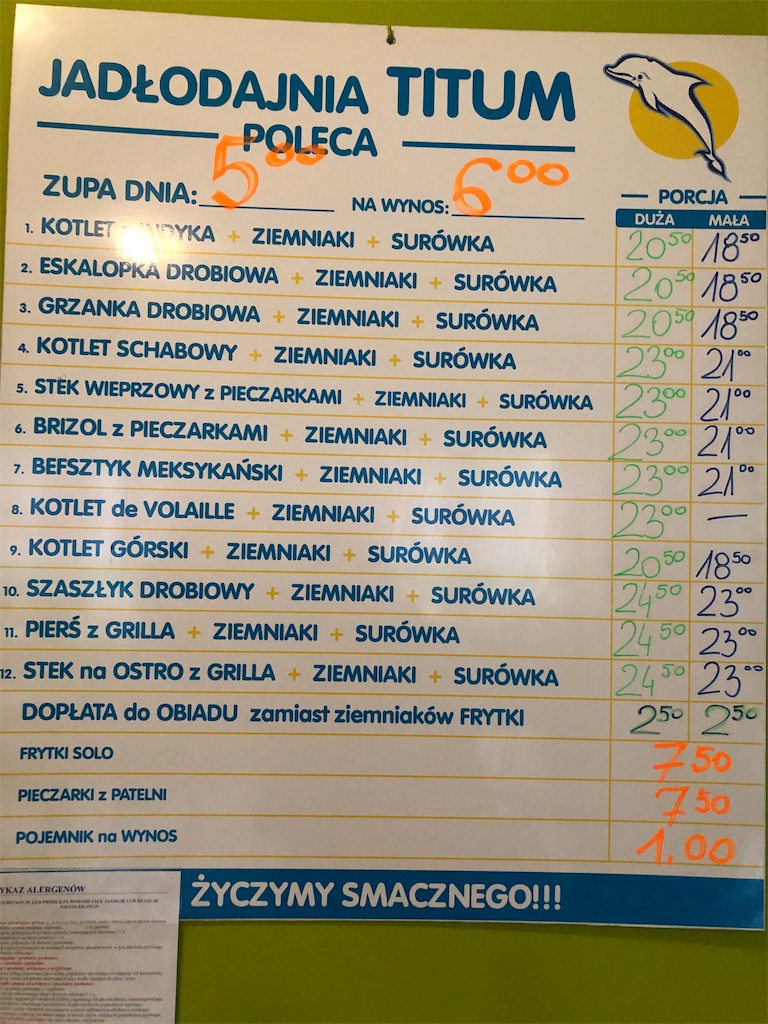 JADŁODAJNIA TITUM
POLECA
ZUPA DNIA: 5 00 NA WYNOS: 6 00
PORCJA
DUŻA MAŁA
1. KOTLET z INDYKA + ZIEMNIAKI + SURÓWKA 20 50 18 50
2. ESKALOPKA DROBIOWA + ZIEMNIAKI + SURÓWKA 20 50 18 50
3. GRZANKA DROBIOWA + ZIEMNIAKI + SURÓWKA 20 50 18 50
4. KOTLET SCHABOWY + ZIEMNIAKI + SURÓWKA 23 00 21 00
5. STEK WIEPRZOWY z PIECZARKAMI + ZIEMNIAKI + SURÓWKA 23 00 21 00
6. BRIZOL z PIECZARKAMI + ZIEMNIAKI + SURÓWKA 23 00 21 00
7. BEFSZTYK MEKSYKAŃSKI + ZIEMNIAKI + SURÓWKA 23 00 21 00
8. KOTLET de VOLAILLE + ZIEMNIAKI + SURÓWKA 23 00 —
9. KOTLET GÓRSKI + ZIEMNIAKI + SURÓWKA 20 50 18 50
10. SZASZŁYK DROBIOWY + ZIEMNIAKI + SURÓWKA 24 50 23 00
11. PIERŚ z GRILLA + ZIEMNIAKI + SURÓWKA 24 50 23 00
12. STEK na OSTRO z GRILLA + ZIEMNIAKI + SURÓWKA 24 50 23 00
DOPŁATA do OBIADU zamiast ziemniaków FRYTKI 2 50 2 50
FRYTKI SOLO 7 50
PIECZARKI z PATELNI 7 50
POJEMNIK na WYNOS 1,00
ŻYCZYMY SMACZNEGO!!!
YKAZ ALERGENÓW